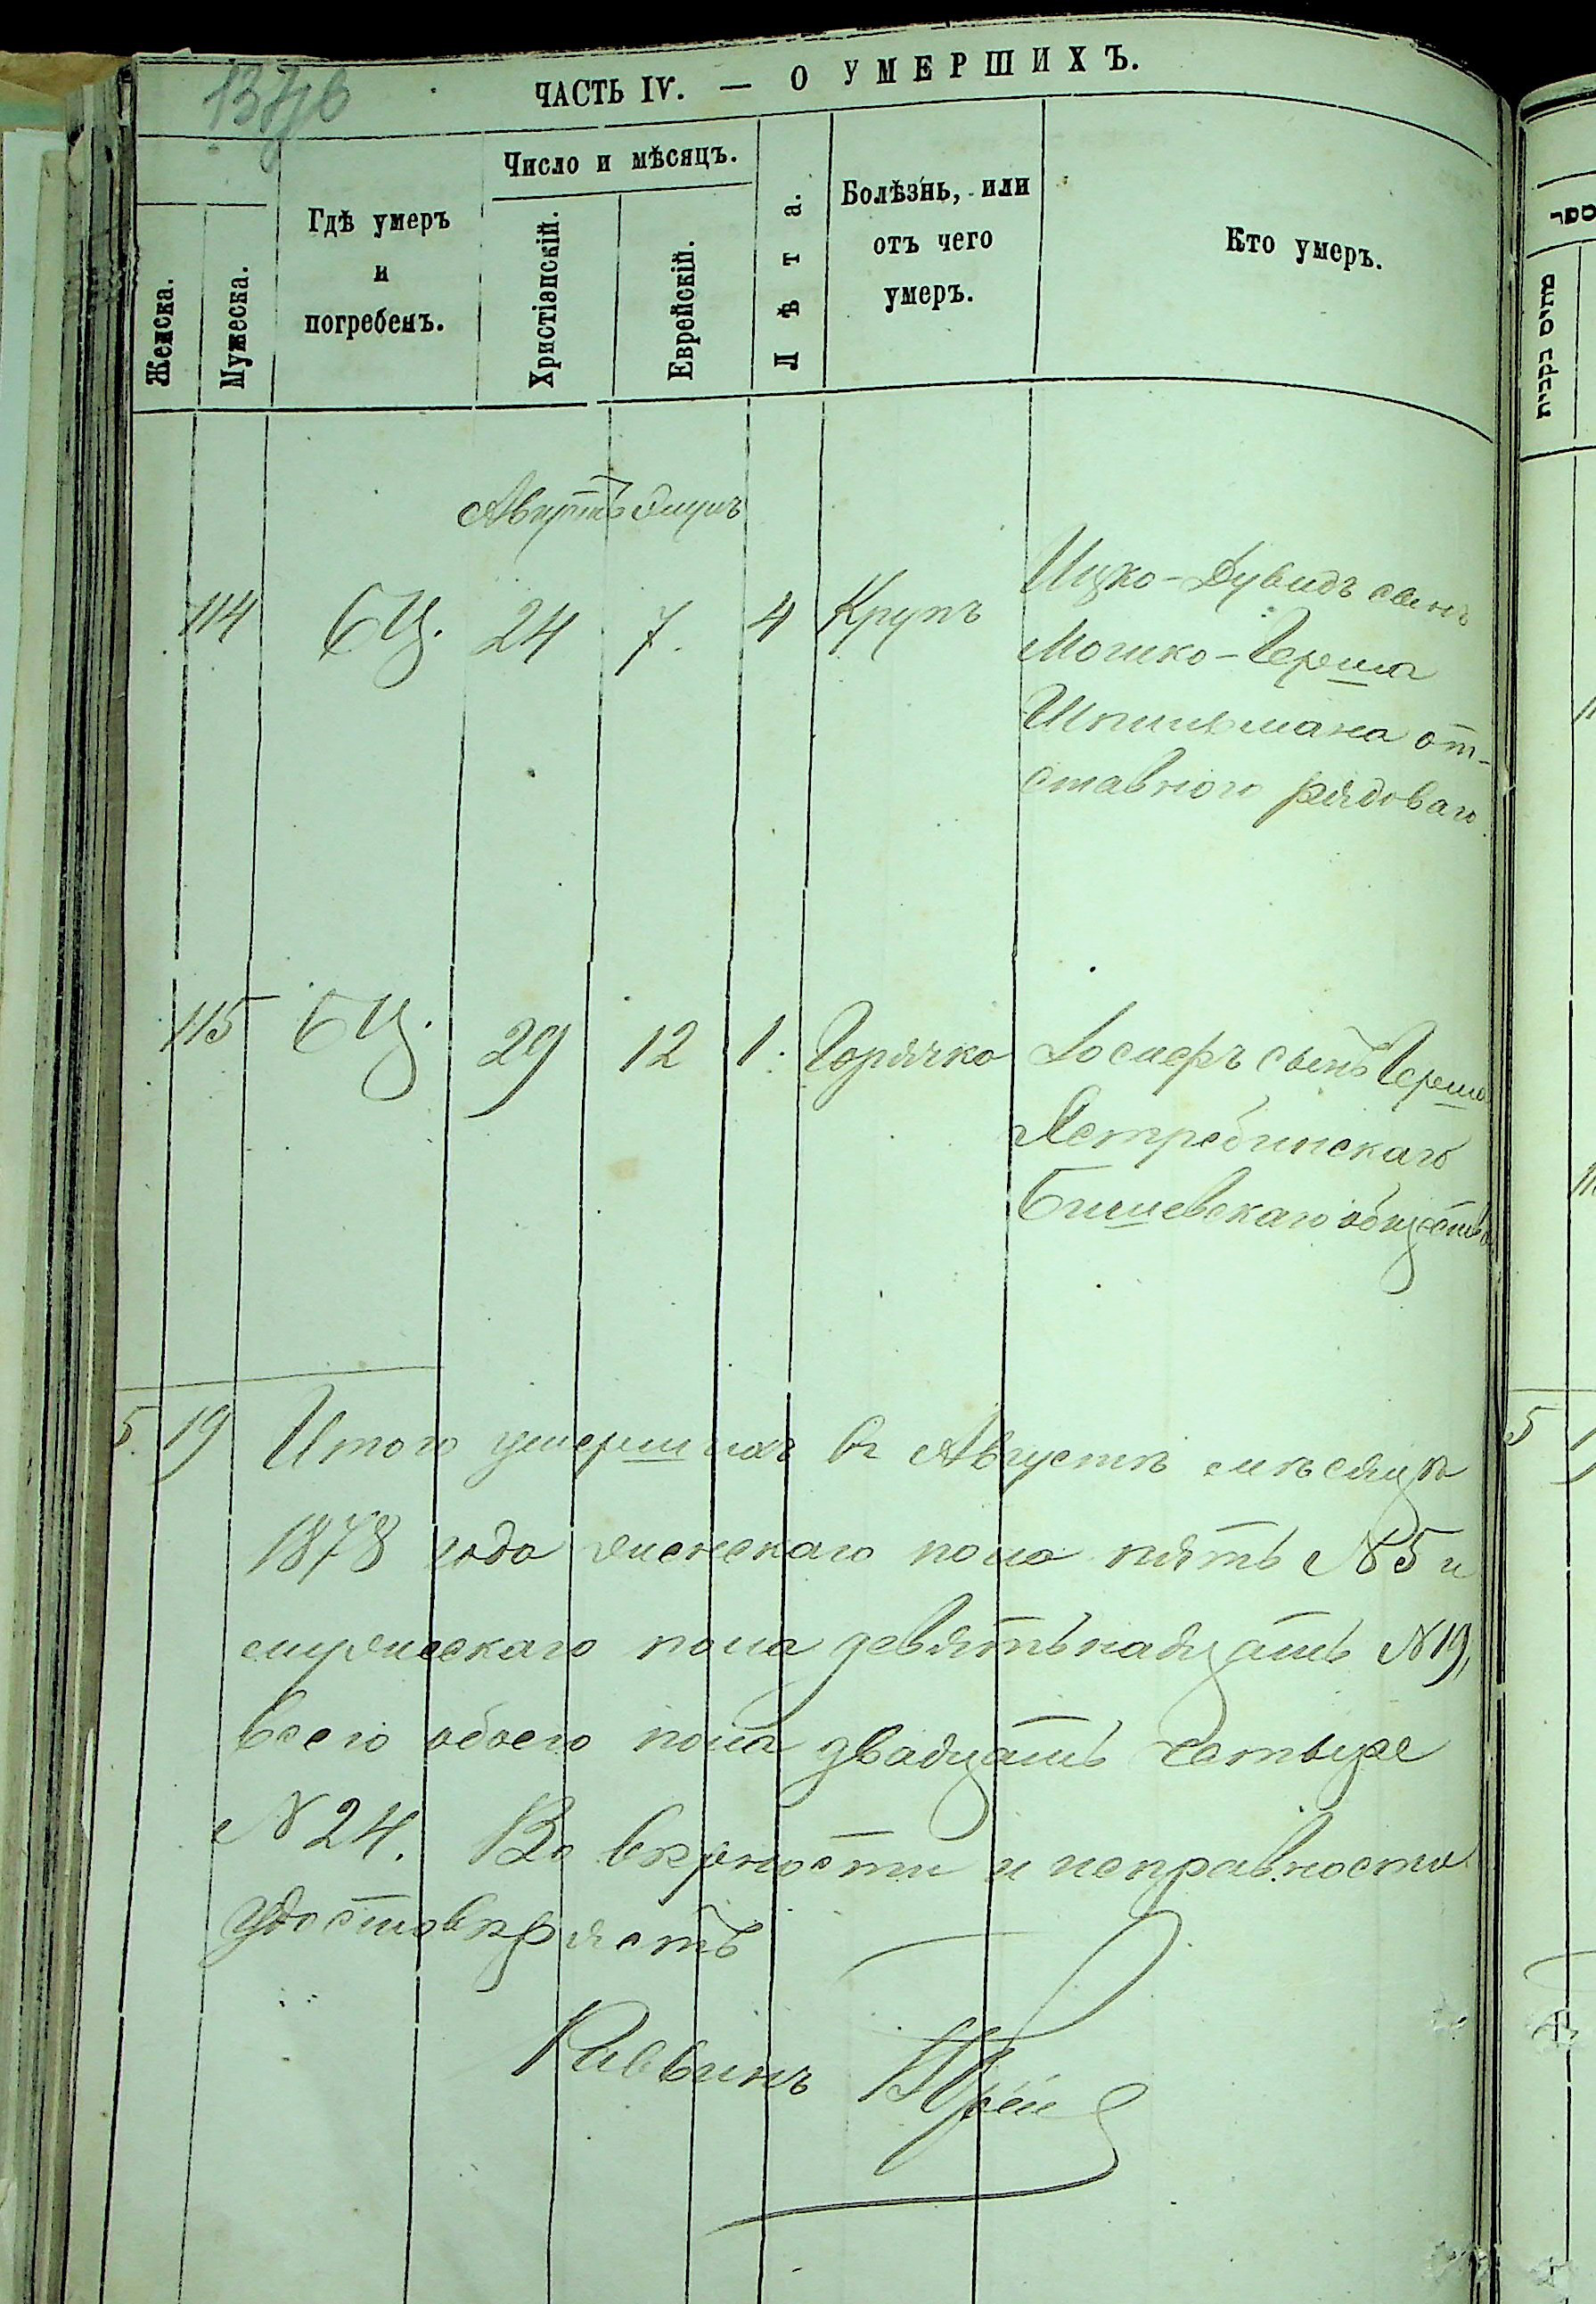 ЧАСТЬ IV. — О УМЕРШИХЪ.
Женска.
Мужеска.
Гдѣ умеръ
и
погребенъ.
Число и мѣсяцъ.
Христіанскій.
Еврейскій.
Лѣта.
Болѣзнь, или
отъ чего
умеръ.
Кто умеръ.
Августъ Элулъ
114 БЦ. 24 7. 4 Крупъ Ицко-Дувидъ сынъ
Мошко-Герша
Шпильмана от-
ставного рядоваго
115 БЦ. 29 12 1. Горячка Іосифъ сынъ Герша
Ястребинскаго
Бишевскаго общества
5. 19 Итого умершихъ въ Августѣ мѣсяцѣ
1878 года женскаго пола пять №5 и
мужескаго пола девятьнадцать №19,
всего обоего пола двадцать четыре
№24. Въ вѣрности и исправности
удостовѣряетъ
Раввинъ
מתים
נקבות
5